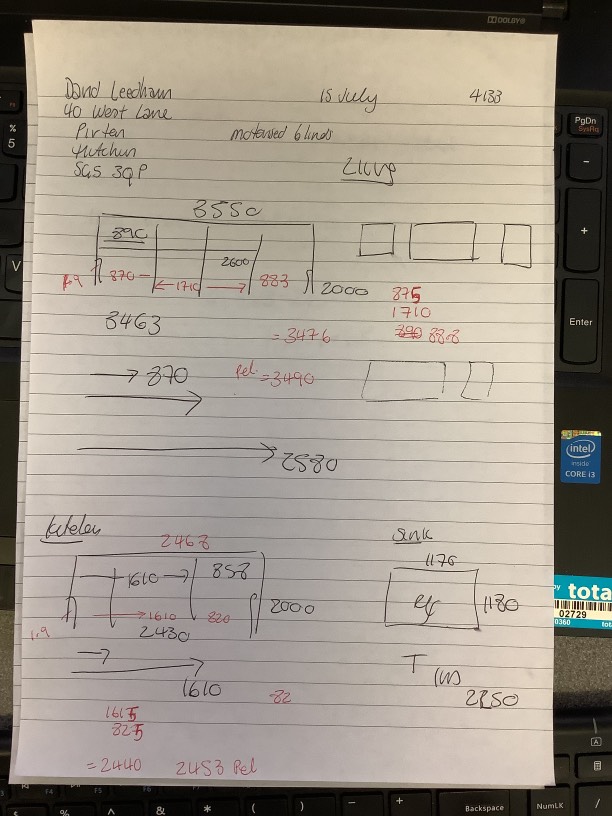 DOLBY
David Leedham 15 July 4133
40 West Lane
Pirton motorised blinds
Hitchin
SG5 3QP Living
3550
890
2600
870 1710 883 2000
875
1710
390 888
3463
= 3476
→ 870 Pel = 3490
2580
Kitchen Sink
2468 1176
1610 858
1180
1610 820 2000
2430
1.9
T (W)
1610 82 2250
1615
825
= 2440 2453 Pel
PgDn
SysRq
%
5
V
-
+
Enter
intel
inside
CORE i3
tota
02729
0360
% ^ & * ( ) - + Backspace NumLK /